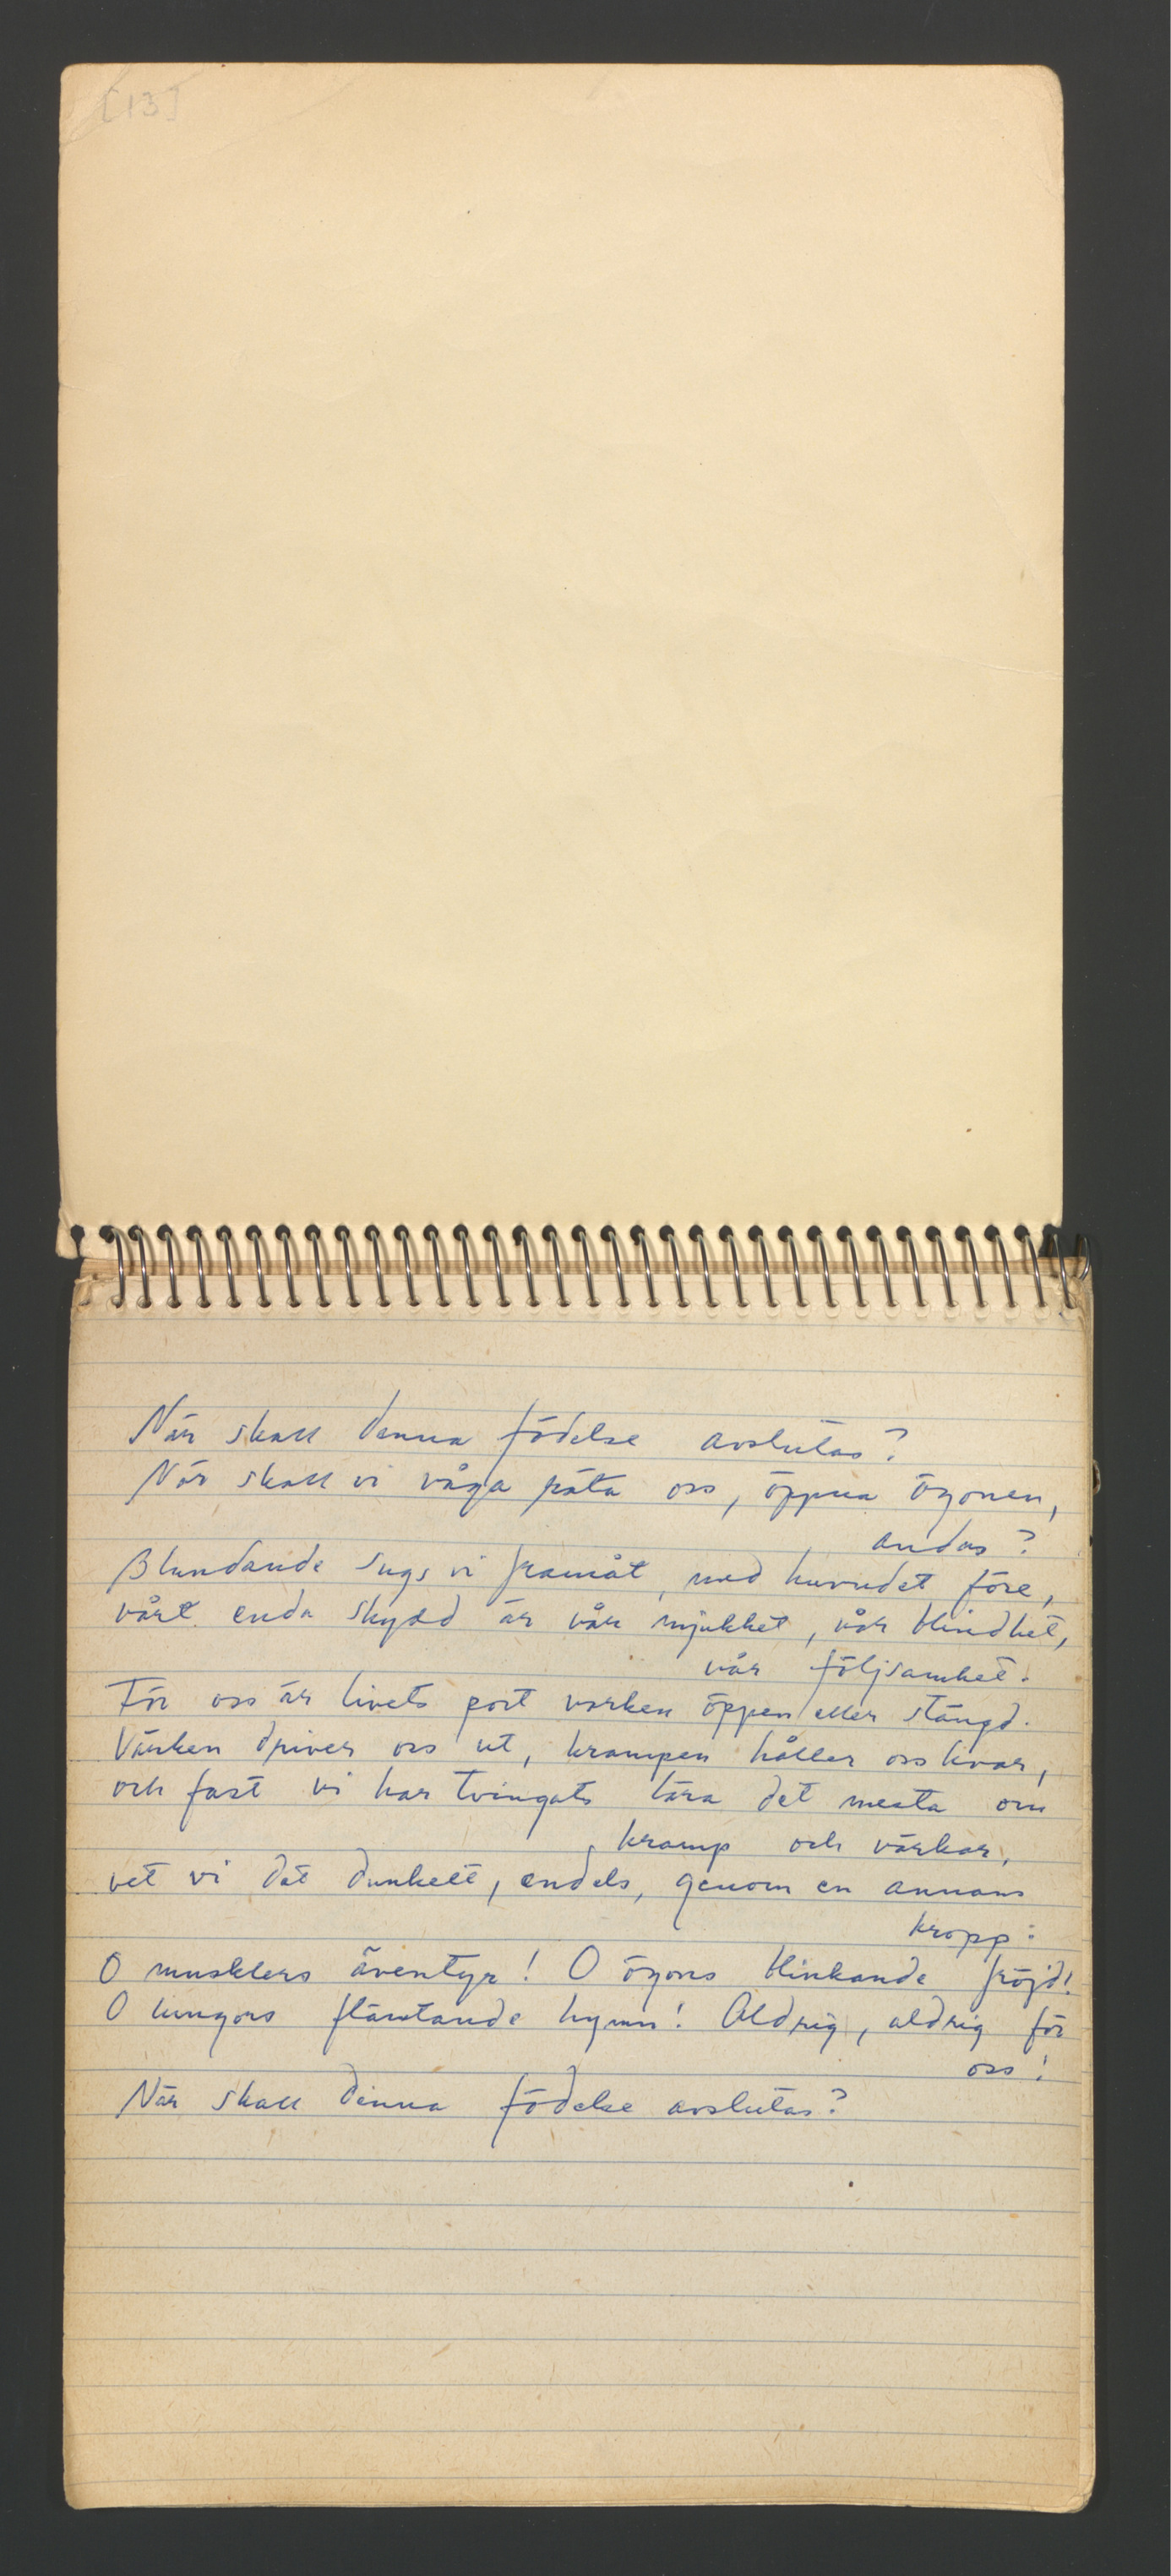 [13]
När skall denna födelse avslutas?
När skall vi våga räta oss, öppna ögonen,
andas?
Blundande sugs vi framåt, med huvudet före,
vårt enda skydd är vår mjukhet, vår blindhet,
vår följsamhet.
För oss är livets port varken öppen eller stängd.
Värken driver oss ut, krampen håller oss kvar,
och fast vi har tvingats lära det mesta om
kramp och värkar,
vet vi det dunkelt, endels, genom en annans
kropp:
O musklers äventyr! O ögons blinkande fröjd!
O lungors flämtande hymn! Aldrig, aldrig för
oss!
När skall denna födelse avslutas?